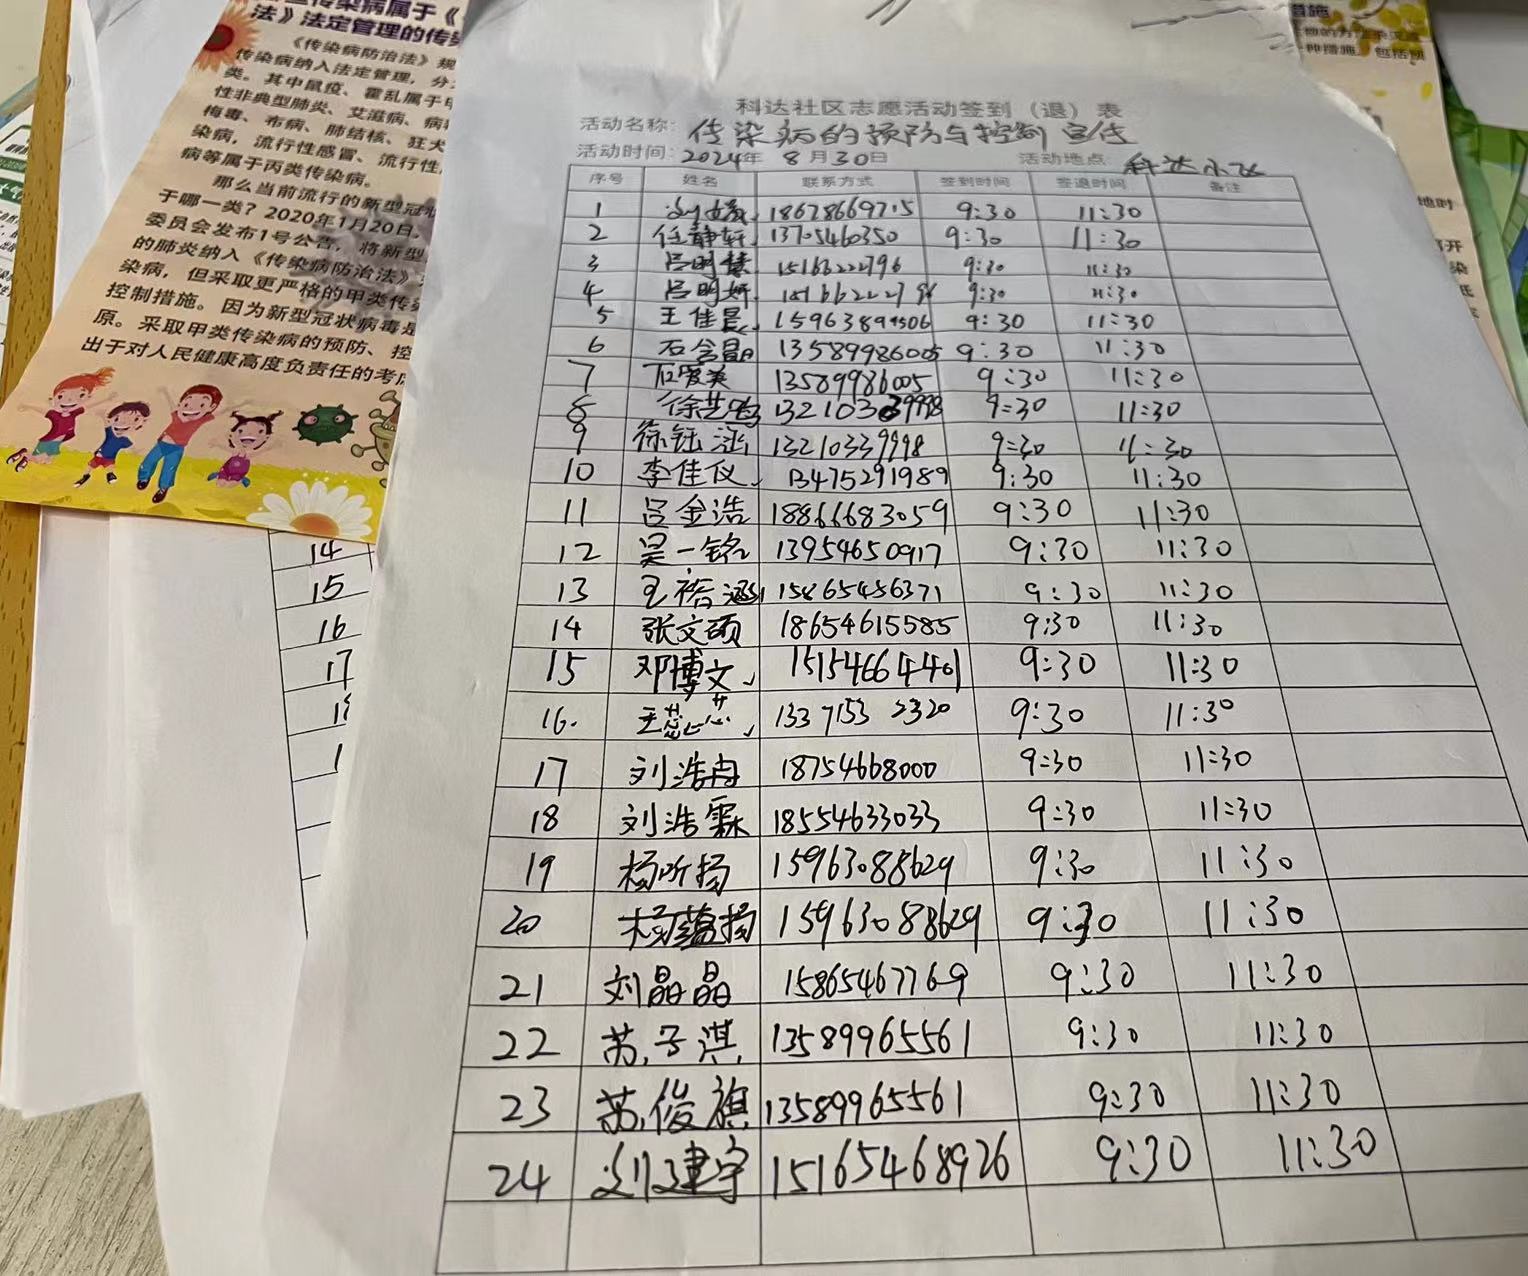 传染病属于《
法》法定管理的传染
《传染病防治法》规
传染病纳入法定管理，分
类。其中鼠疫、霍乱属于甲
性非典型肺炎、艾滋病、病
梅毒、布病、肺结核、狂犬
染病，流行性感冒、流行性
病等属于丙类传染病。
那么当前流行的新型冠状
于哪一类？2020年1月20日，
委员会发布1号公告，将新型
的肺炎纳入《传染病防治法》
染病，但采取更严格的甲类传染
控制措施。因为新型冠状病毒是
原。采取甲类传染病的预防、控
出于对人民健康高度负责任的考虑
14
15
16
17
措施
种措施，包括预
科达社区志愿活动签到（退）表
活动名称：传染病的预防与控制宣传
活动时间：2024年8月30日 活动地点：科达小区
序号 姓名 联系方式 签到时间 签退时间 备注
1 18678669715 9:30 11:30
2 任静轩 13705460350 9:30 11:30
3 吕明慧 15163222796 9:30 11:30
4 吕明妍 9:30 11:30
5 王佳晨 9:30 11:30
6 石含晶 13589986005 9:30 11:30
7 石爱美 13589986005 9:30 11:30
8 9:30 11:30
9 徐钰涵 13210339998 9:30 11:30
10 李佳仪 13475291989 9:30 11:30
11 吕金浩 18866683059 9:30 11:30
12 吴一铭 13954650917 9:30 11:30
13 15865456371 9:30 11:30
14 张文硕 18654615585 9:30 11:30
15 邓博文 15154664401 9:30 11:30
16. 王蕊芯 13371532320 9:30 11:30
17 刘浩冉 18754668000 9:30 11:30
18 刘浩霖 18554633033 9:30 11:30
19 杨听扬 15963088629 9:30 11:30
20 杨蕴扬 15963088629 9:30 11:30
21 刘晶晶 15865467769 9:30 11:30
22 苏子淇 13589965561 9:30 11:30
23 苏俊祺 13589965561 9:30 11:30
24 刘建宇 15165468926 9:30 11:30